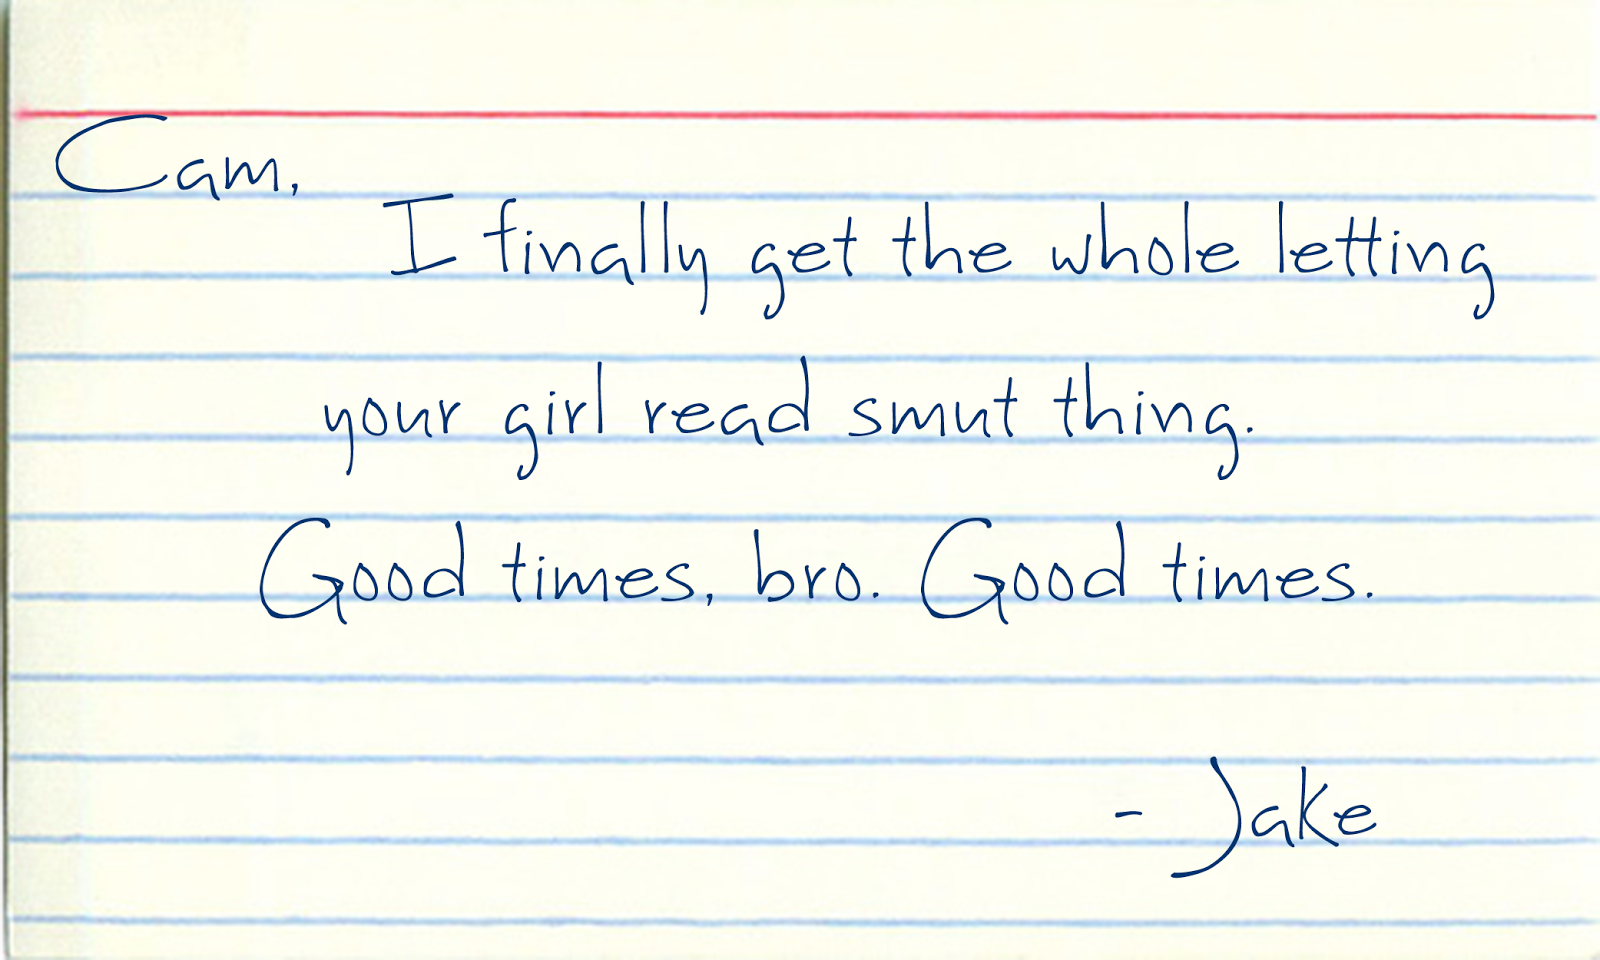 Cam,
I finally get the whole letting
your girl read smut thing.
Good times, bro. Good times.
- Jake